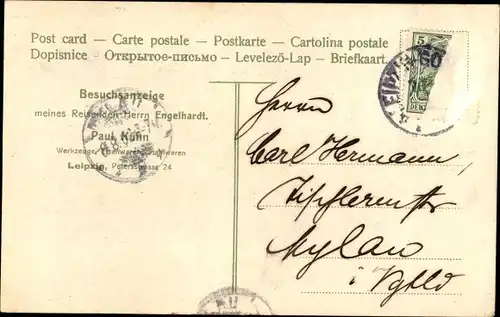 Post card — Carte postale — Postkarte — Cartolina postale
Dopisnice — Открытое-письмо — Levelező-Lap — Briefkaart.
5
Besuchsanzeige
meines Reisenden Herrn Engelhardt.
Paul Kühn
Leipzig, Petersstrasse 24
Herrn
Carl Hermann,
Tischlermstr.
Mylau
i. Vgtld